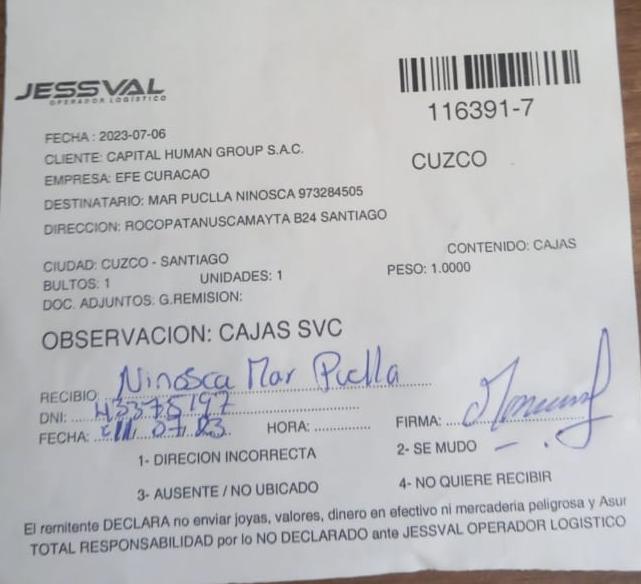 JESSVAL
OPERADOR LOGÍSTICO
116391-7
FECHA : 2023-07-06
CLIENTE: CAPITAL HUMAN GROUP S.A.C.
CUZCO
EMPRESA: EFE CURACAO
DESTINATARIO: MAR PUCLLA NINOSCA 973284505
DIRECCION: ROCOPATANUSCAMAYTA B24 SANTIAGO
CIUDAD: CUZCO - SANTIAGO
CONTENIDO: CAJAS
BULTOS: 1 UNIDADES: 1 PESO: 1.0000
DOC. ADJUNTOS: G.REMISION:
OBSERVACION: CAJAS SVC
RECIBIO: Ninosca Mar Puclla
DNI: 43375197
FECHA: 07.23. HORA: FIRMA:
1- DIRECION INCORRECTA 2- SE MUDO
3- AUSENTE / NO UBICADO 4- NO QUIERE RECIBIR
El remitente DECLARA no enviar joyas, valores, dinero en efectivo ni mercaderia peligrosa y Asur
TOTAL RESPONSABILIDAD por lo NO DECLARADO ante JESSVAL OPERADOR LOGISTICO